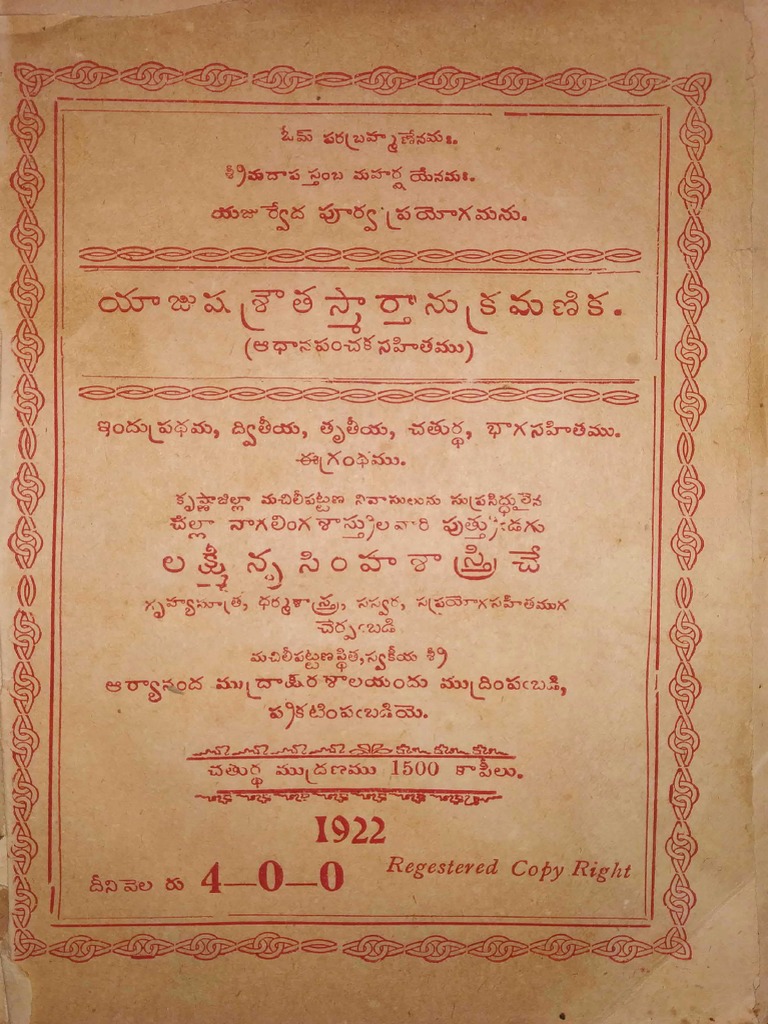 ఓమ్ పరబ్రహ్మణేనమః.
శ్రీమదాప స్తంబ మహర్ష యేనమః.
యజుర్వేద పూర్వ ప్రయోగమను.
యాజుషశ్రౌతస్మార్తానుక్రమణిక.
(ఆధానపంచకసహితము)
ఇందుప్రథమ, ద్వితీయ, తృతీయ, చతుర్థ, భాగసహితము.
ఈగ్రంథము.
కృష్ణాజిల్లా మచిలీపట్టణ నివాసులును సుప్రసిద్ధులైన
చిల్లా నాగలింగశాస్త్రులవారి పుత్త్రుఁడగు
లక్ష్మీనృసింహశాస్త్రిచే
గృహ్యసూత్ర, ధర్మశాస్త్ర, సస్వర, సప్రయోగసహితముగ
చేర్పఁబడి
మచిలీపట్టణస్థిత,స్వకీయ శ్రీ
ఆర్యానంద ముద్రాక్షరశాలయందు ముద్రింపఁబడి,
ప్రకటింపఁబడియె.
చతుర్థ ముద్రణము 1500 కాపీలు.
1922
దీనివెల రు 4—0—0 Regestered Copy Right